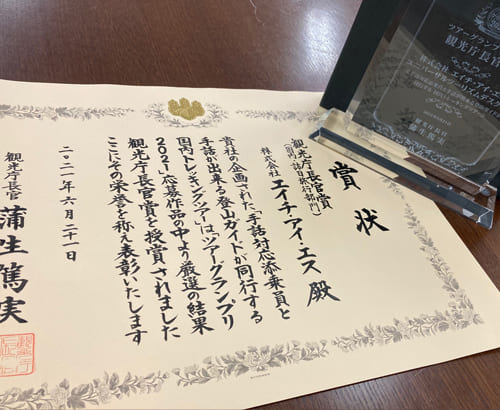 賞状
観光庁長官賞
(国内・訪日旅行部門)
株式会社 エイチ・アイ・エス 殿
貴社の企画された「手話対応添乗員と
手話が出来る登山ガイドが同行する
国内トレッキングツアー」はツアーグランプリ
2021応募作品の中より厳選の結果
観光庁長官賞を授賞されました
ここにその栄誉を称え表彰いたします
二〇二一年六月二十一日
観光庁長官 蒲生篤実
ツアーグラン
観光庁長官
株式会社 エイチ・アイ・